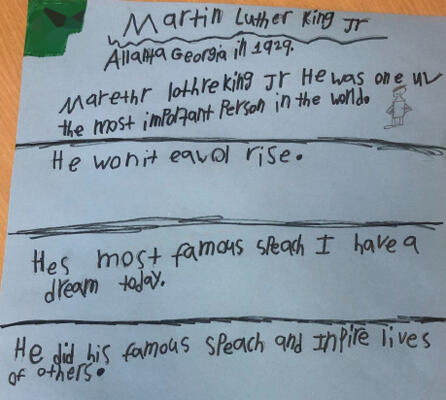 Martin Luther King Jr
Atlanta Georgia in 1929.
Marethr lothre king Jr He was one uv
the most important Person in the world.
He wonit eauol rise.
Hes most famous speach I have a
dream today.
He did his famous speach and Inpire lives
of others.